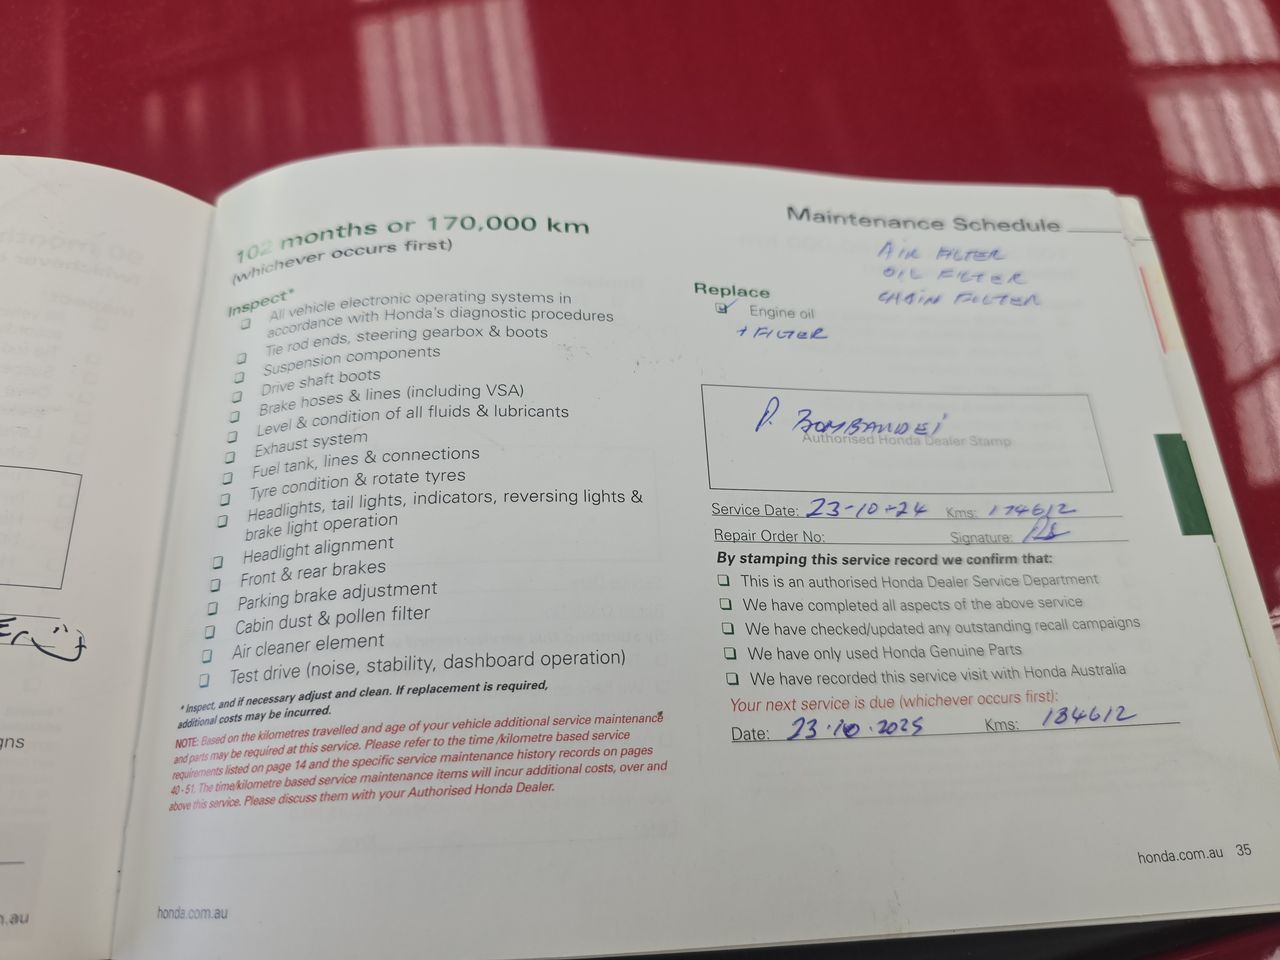 102 months or 170,000 km
(whichever occurs first)
Inspect*
All vehicle electronic operating systems in
accordance with Honda's diagnostic procedures
Tie rod ends, steering gearbox & boots
Suspension components
Drive shaft boots
Brake hoses & lines (including VSA)
Level & condition of all fluids & lubricants
Exhaust system
Fuel tank, lines & connections
Tyre condition & rotate tyres
Headlights, tail lights, indicators, reversing lights &
brake light operation
Headlight alignment
Front & rear brakes
Parking brake adjustment
Cabin dust & pollen filter
Air cleaner element
Test drive (noise, stability, dashboard operation)
* Inspect, and if necessary adjust and clean. If replacement is required,
additional costs may be incurred.
NOTE: Based on the kilometres travelled and age of your vehicle additional service maintenance
and parts may be required at this service. Please refer to the time /kilometre based service
requirements listed on page 14 and the specific service maintenance history records on pages
40-51. The time/kilometre based service maintenance items will incur additional costs, over and
above this service. Please discuss them with your Authorised Honda Dealer.
honda.com.au
Maintenance Schedule
AIR FILTER
OIL FILTER
CABIN FILTER
Replace
Engine oil
+ FILTER
P. BOMBARDEI
Authorised Honda Dealer Stamp
Service Date: 23-10-24 Kms: 174612
Repair Order No: Signature:
By stamping this service record we confirm that:
This is an authorised Honda Dealer Service Department
We have completed all aspects of the above service
We have checked/updated any outstanding recall campaigns
We have only used Honda Genuine Parts
We have recorded this service visit with Honda Australia
Your next service is due (whichever occurs first):
Date: 23.10.2025 Kms: 184612
honda.com.au 35